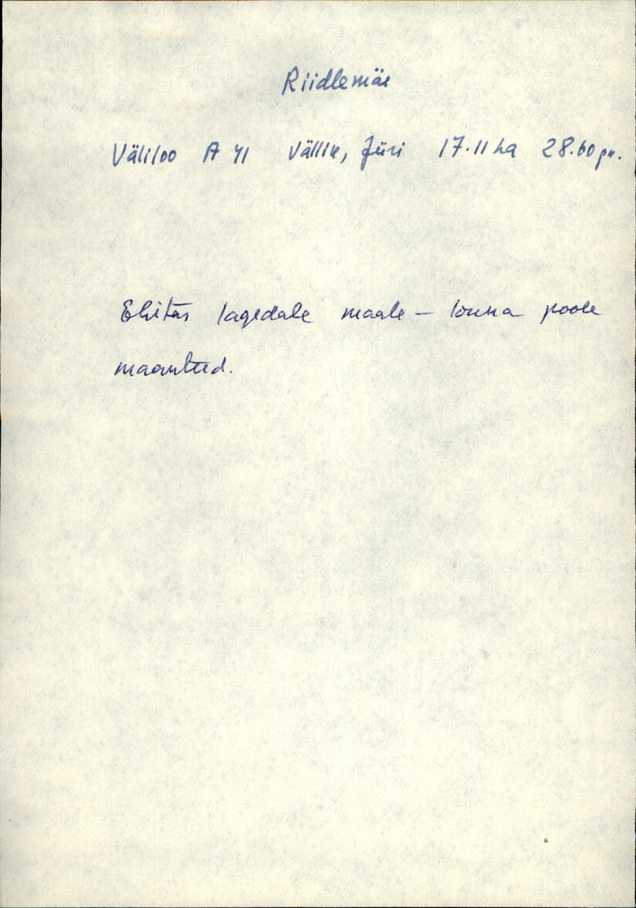 Riidlemäe
Väliloo A 41 Vällik, Jüri 17.11 ha 28.60 pn.
Ehitas lagedale maale – lõuna poole
maanteed.